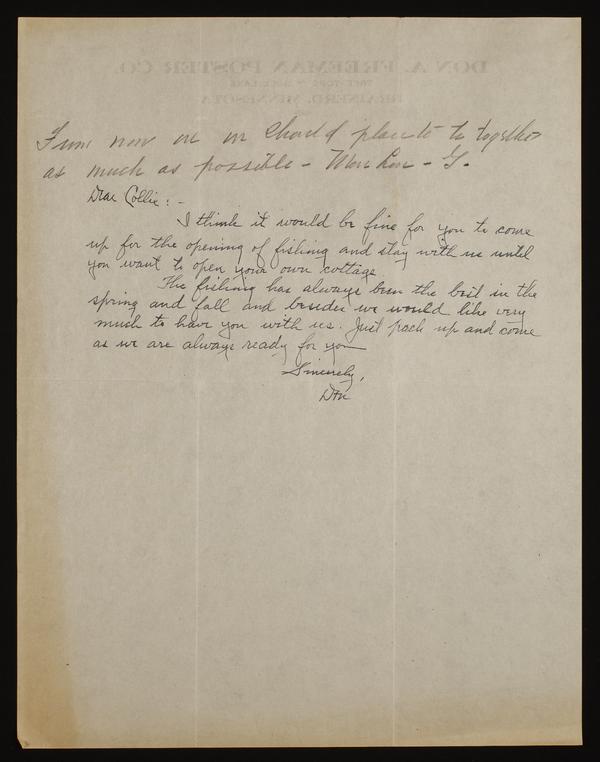 DON A. FREEMAN POSTER CO.
BRAINERD, MINNESOTA
From now on we should plan to be together
as much as possible - More Love - G.
Dear Collie: -
I think it would be fine for you to come
up for the opening of fishing and stay with us until
you want to open your own cottage
The fishing has always been the best in the
spring and fall and besides we would like very
much to have you with us. Just pack up and come
as we are always ready for you
Sincerely,